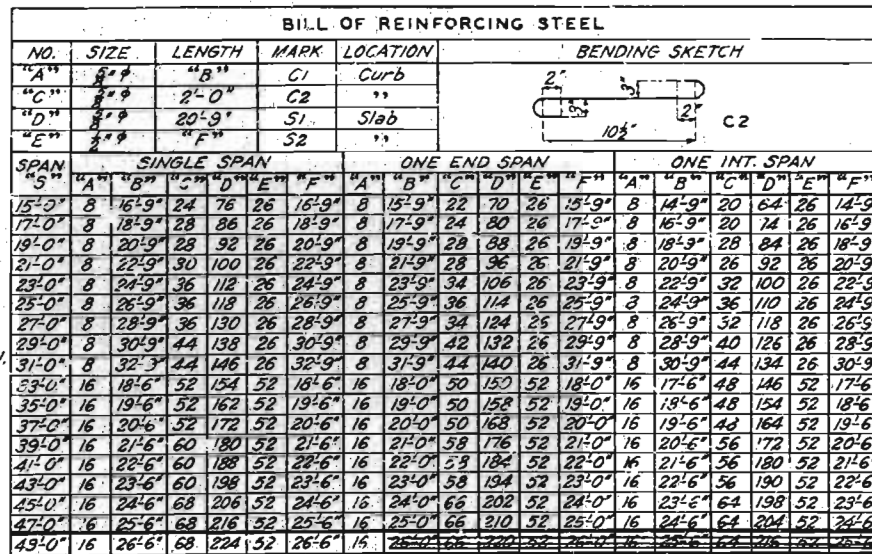 BILL OF REINFORCING STEEL
NO. SIZE LENGTH MARK LOCATION BENDING SKETCH
"A" 5/8" φ "B" C1 Curb
"C" φ 2'-0" C2 "
"D" 5/8" φ 20'-9" S1 Slab
"E" 1/2" φ "F" S2 "
2" 3" 3" 2" 10½" C2
SPAN "S" SINGLE SPAN ONE END SPAN ONE INT. SPAN
"A" "B" "C" "D" "E" "F" "A" "B" "C" "D" "E" "F" "A" "B" "C" "D" "E" "F"
15'-0" 8 16'-9" 24 76 26 16'-9" 8 15'-9" 22 70 26 15'-9" 8 14'-9" 20 64 26 14'-9
17'-0" 8 18'-9" 28 86 26 18'-9" 8 17'-9" 24 80 26 17'-9" 8 16'-9" 20 74 26 16'-9
19'-0" 8 20'-9" 28 92 26 20'-9" 8 19'-9" 28 88 26 19'-9" 8 18'-9" 28 84 26 18'-9
21'-0" 8 22'-9" 30 100 26 22'-9" 8 21'-9" 28 96 26 21'-9" 8 20'-9" 26 92 26 20'-9
23'-0" 8 24'-9" 36 112 26 24'-9" 8 23'-9" 34 106 26 23'-9" 8 22'-9" 32 100 26 22'-9
25'-0" 8 26'-9" 36 118 26 26'-9" 8 25'-9" 36 114 26 25'-9" 8 24'-9" 36 110 26 24'-9
27'-0" 8 28'-9" 36 130 26 28'-9" 8 27'-9" 34 124 26 27'-9" 8 26'-9" 32 118 26 26'-9
29'-0" 8 30'-9" 44 138 26 30'-9" 8 29'-9" 42 132 26 29'-9" 8 28'-9" 40 126 26 28'-9
31'-0" 8 32'-9" 44 146 26 32'-9" 8 31'-9" 44 140 26 31'-9" 8 30'-9" 44 134 26 30'-9
33'-0" 16 18'-6" 52 154 52 18'-6" 16 18'-0" 50 150 52 18'-0" 16 17'-6" 48 146 52 17'-6
35'-0" 16 19'-6" 52 162 52 19'-6" 16 19'-0" 50 158 52 19'-0" 16 18'-6" 48 154 52 18'-6
37'-0" 16 20'-6" 52 172 52 20'-6" 16 20'-0" 50 168 52 20'-0" 16 19'-6" 48 164 52 19'-6
39'-0" 16 21'-6" 60 180 52 21'-6" 16 21'-0" 58 176 52 21'-0" 16 20'-6" 56 172 52 20'-6
41'-0" 16 22'-6" 60 188 52 22'-6" 16 22'-0" 58 184 52 22'-0" 16 21'-6" 56 180 52 21'-6
43'-0" 16 23'-6" 60 198 52 23'-6" 16 23'-0" 58 194 52 23'-0" 16 22'-6" 56 190 52 22'-6
45'-0" 16 24'-6" 68 206 52 24'-6" 16 24'-0" 66 202 52 24'-0" 16 23'-6" 64 198 52 23'-6
47'-0" 16 25'-6" 68 216 52 25'-6" 16 25'-0" 66 210 52 25'-0" 16 24'-6" 64 204 52 24'-6
49'-0" 16 26'-6" 68 224 52 26'-6" 16 26'-0" 66 220 52 26'-0" 16 25'-6" 64 216 52